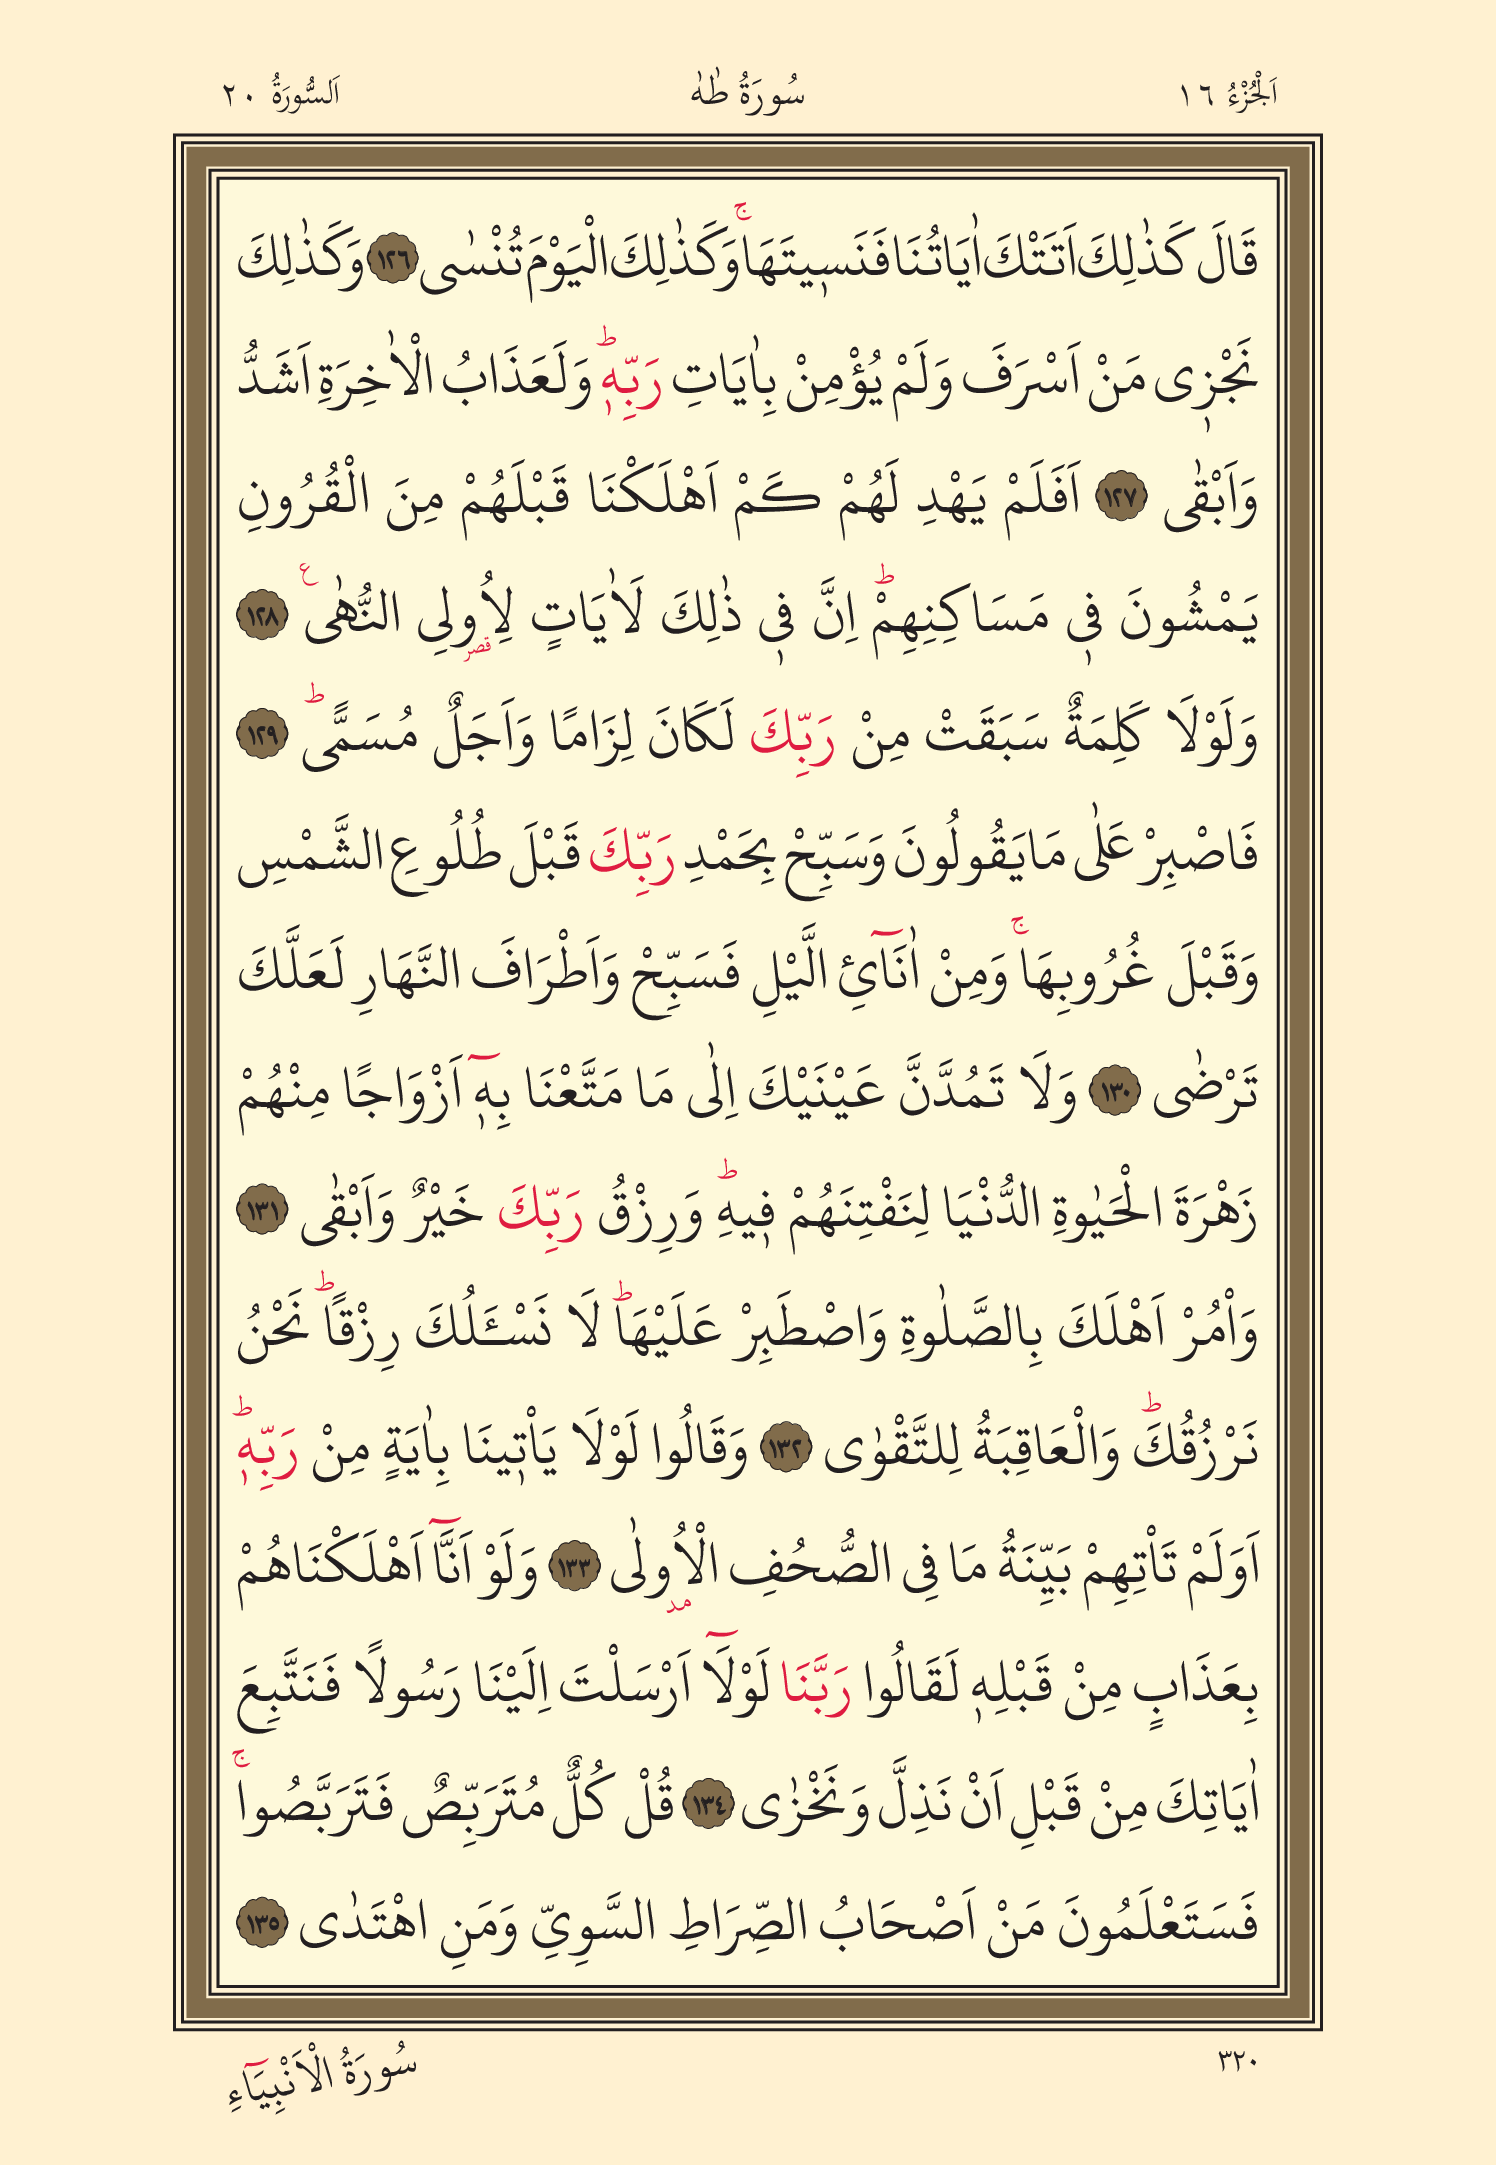 اَلْجُزْءُ ١٦
سُورَةُ طٰهٰ
اَلسُّورَةُ ٢٠
قَالَ كَذٰلِكَ اَتَتْكَ اٰيَاتُنَا فَنَسٖيتَهَاۚ وَكَذٰلِكَ الْيَوْمَ تُنْسٰى ﴿١٢٦﴾ وَكَذٰلِكَ
نَجْزٖى مَنْ اَسْرَفَ وَلَمْ يُؤْمِنْ بِاٰيَاتِ رَبِّهٖؕ وَلَعَذَابُ الْاٰخِرَةِ اَشَدُّ
وَاَبْقٰى ﴿١٢٧﴾ اَفَلَمْ يَهْدِ لَهُمْ كَمْ اَهْلَكْنَا قَبْلَهُمْ مِنَ الْقُرُونِ
يَمْشُونَ فٖى مَسَاكِنِهِمْؕ اِنَّ فٖى ذٰلِكَ لَاٰيَاتٍ لِاُو۬لِى النُّهٰىࣖ ﴿١٢٨﴾
قصر
وَلَوْلَا كَلِمَةٌ سَبَقَتْ مِنْ رَبِّكَ لَكَانَ لِزَامًا وَاَجَلٌ مُسَمًّىؕ ﴿١٢٩﴾
فَاصْبِرْ عَلٰى مَايَقُولُونَ وَسَبِّحْ بِحَمْدِ رَبِّكَ قَبْلَ طُلُوعِ الشَّمْسِ
وَقَبْلَ غُرُوبِهَاۚ وَمِنْ اٰنَآئِ الَّيْلِ فَسَبِّحْ وَاَطْرَافَ النَّهَارِ لَعَلَّكَ
تَرْضٰى ﴿١٣٠﴾ وَلَا تَمُدَّنَّ عَيْنَيْكَ اِلٰى مَا مَتَّعْنَا بِهٖٓ اَزْوَاجًا مِنْهُمْ
زَهْرَةَ الْحَيٰوةِ الدُّنْيَا لِنَفْتِنَهُمْ فٖيهِؕ وَرِزْقُ رَبِّكَ خَيْرٌ وَاَبْقٰى ﴿١٣١﴾
وَاْمُرْ اَهْلَكَ بِالصَّلٰوةِ وَاصْطَبِرْ عَلَيْهَاؕ لَا نَسْـَٔلُكَ رِزْقًاؕ نَحْنُ
نَرْزُقُكَؕ وَالْعَاقِبَةُ لِلتَّقْوٰى ﴿١٣٢﴾ وَقَالُوا لَوْلَا يَاْتٖينَا بِاٰيَةٍ مِنْ رَبِّهٖؕ
اَوَلَمْ تَاْتِهِمْ بَيِّنَةُ مَا فِى الصُّحُفِ الْاُولٰى ﴿١٣٣﴾ وَلَوْ اَنَّآ اَهْلَكْنَاهُمْ
مد
بِعَذَابٍ مِنْ قَبْلِهٖ لَقَالُوا رَبَّنَا لَوْلَآ اَرْسَلْتَ اِلَيْنَا رَسُولًا فَنَتَّبِعَ
اٰيَاتِكَ مِنْ قَبْلِ اَنْ نَذِلَّ وَنَخْزٰى ﴿١٣٤﴾ قُلْ كُلٌّ مُتَرَبِّصٌ فَتَرَبَّصُواۚ
فَسَتَعْلَمُونَ مَنْ اَصْحَابُ الصِّرَاطِ السَّوِىِّ وَمَنِ اهْتَدٰى ﴿١٣٥﴾
٣٢٠
سُورَةُ الْاَنْبِيَآءِ